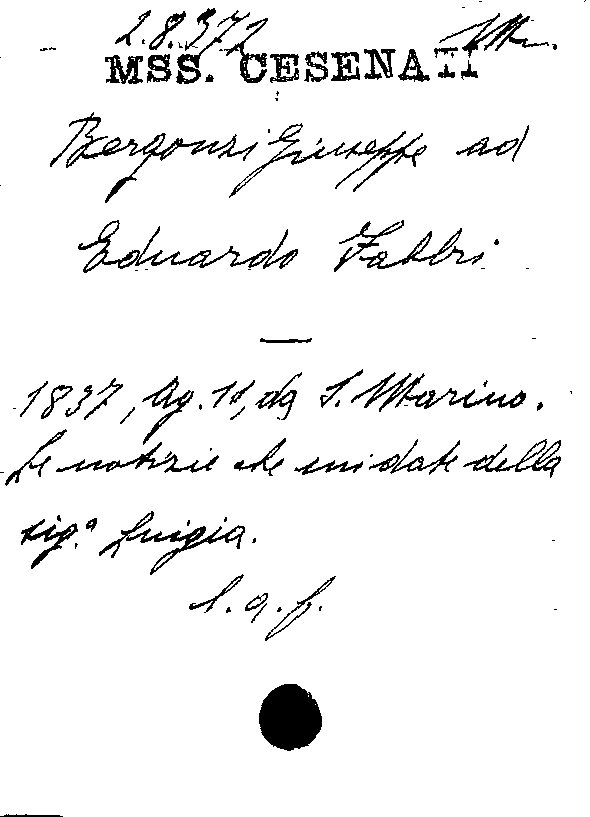 2.8.372
MSS. CESENATI
Bergonzi Giuseppe ad
Eduardo Fabbri
1837, Ag. 11, da S. Marino.
Le notizie che mi date della
sig.ª Luigia.
l. a. f.